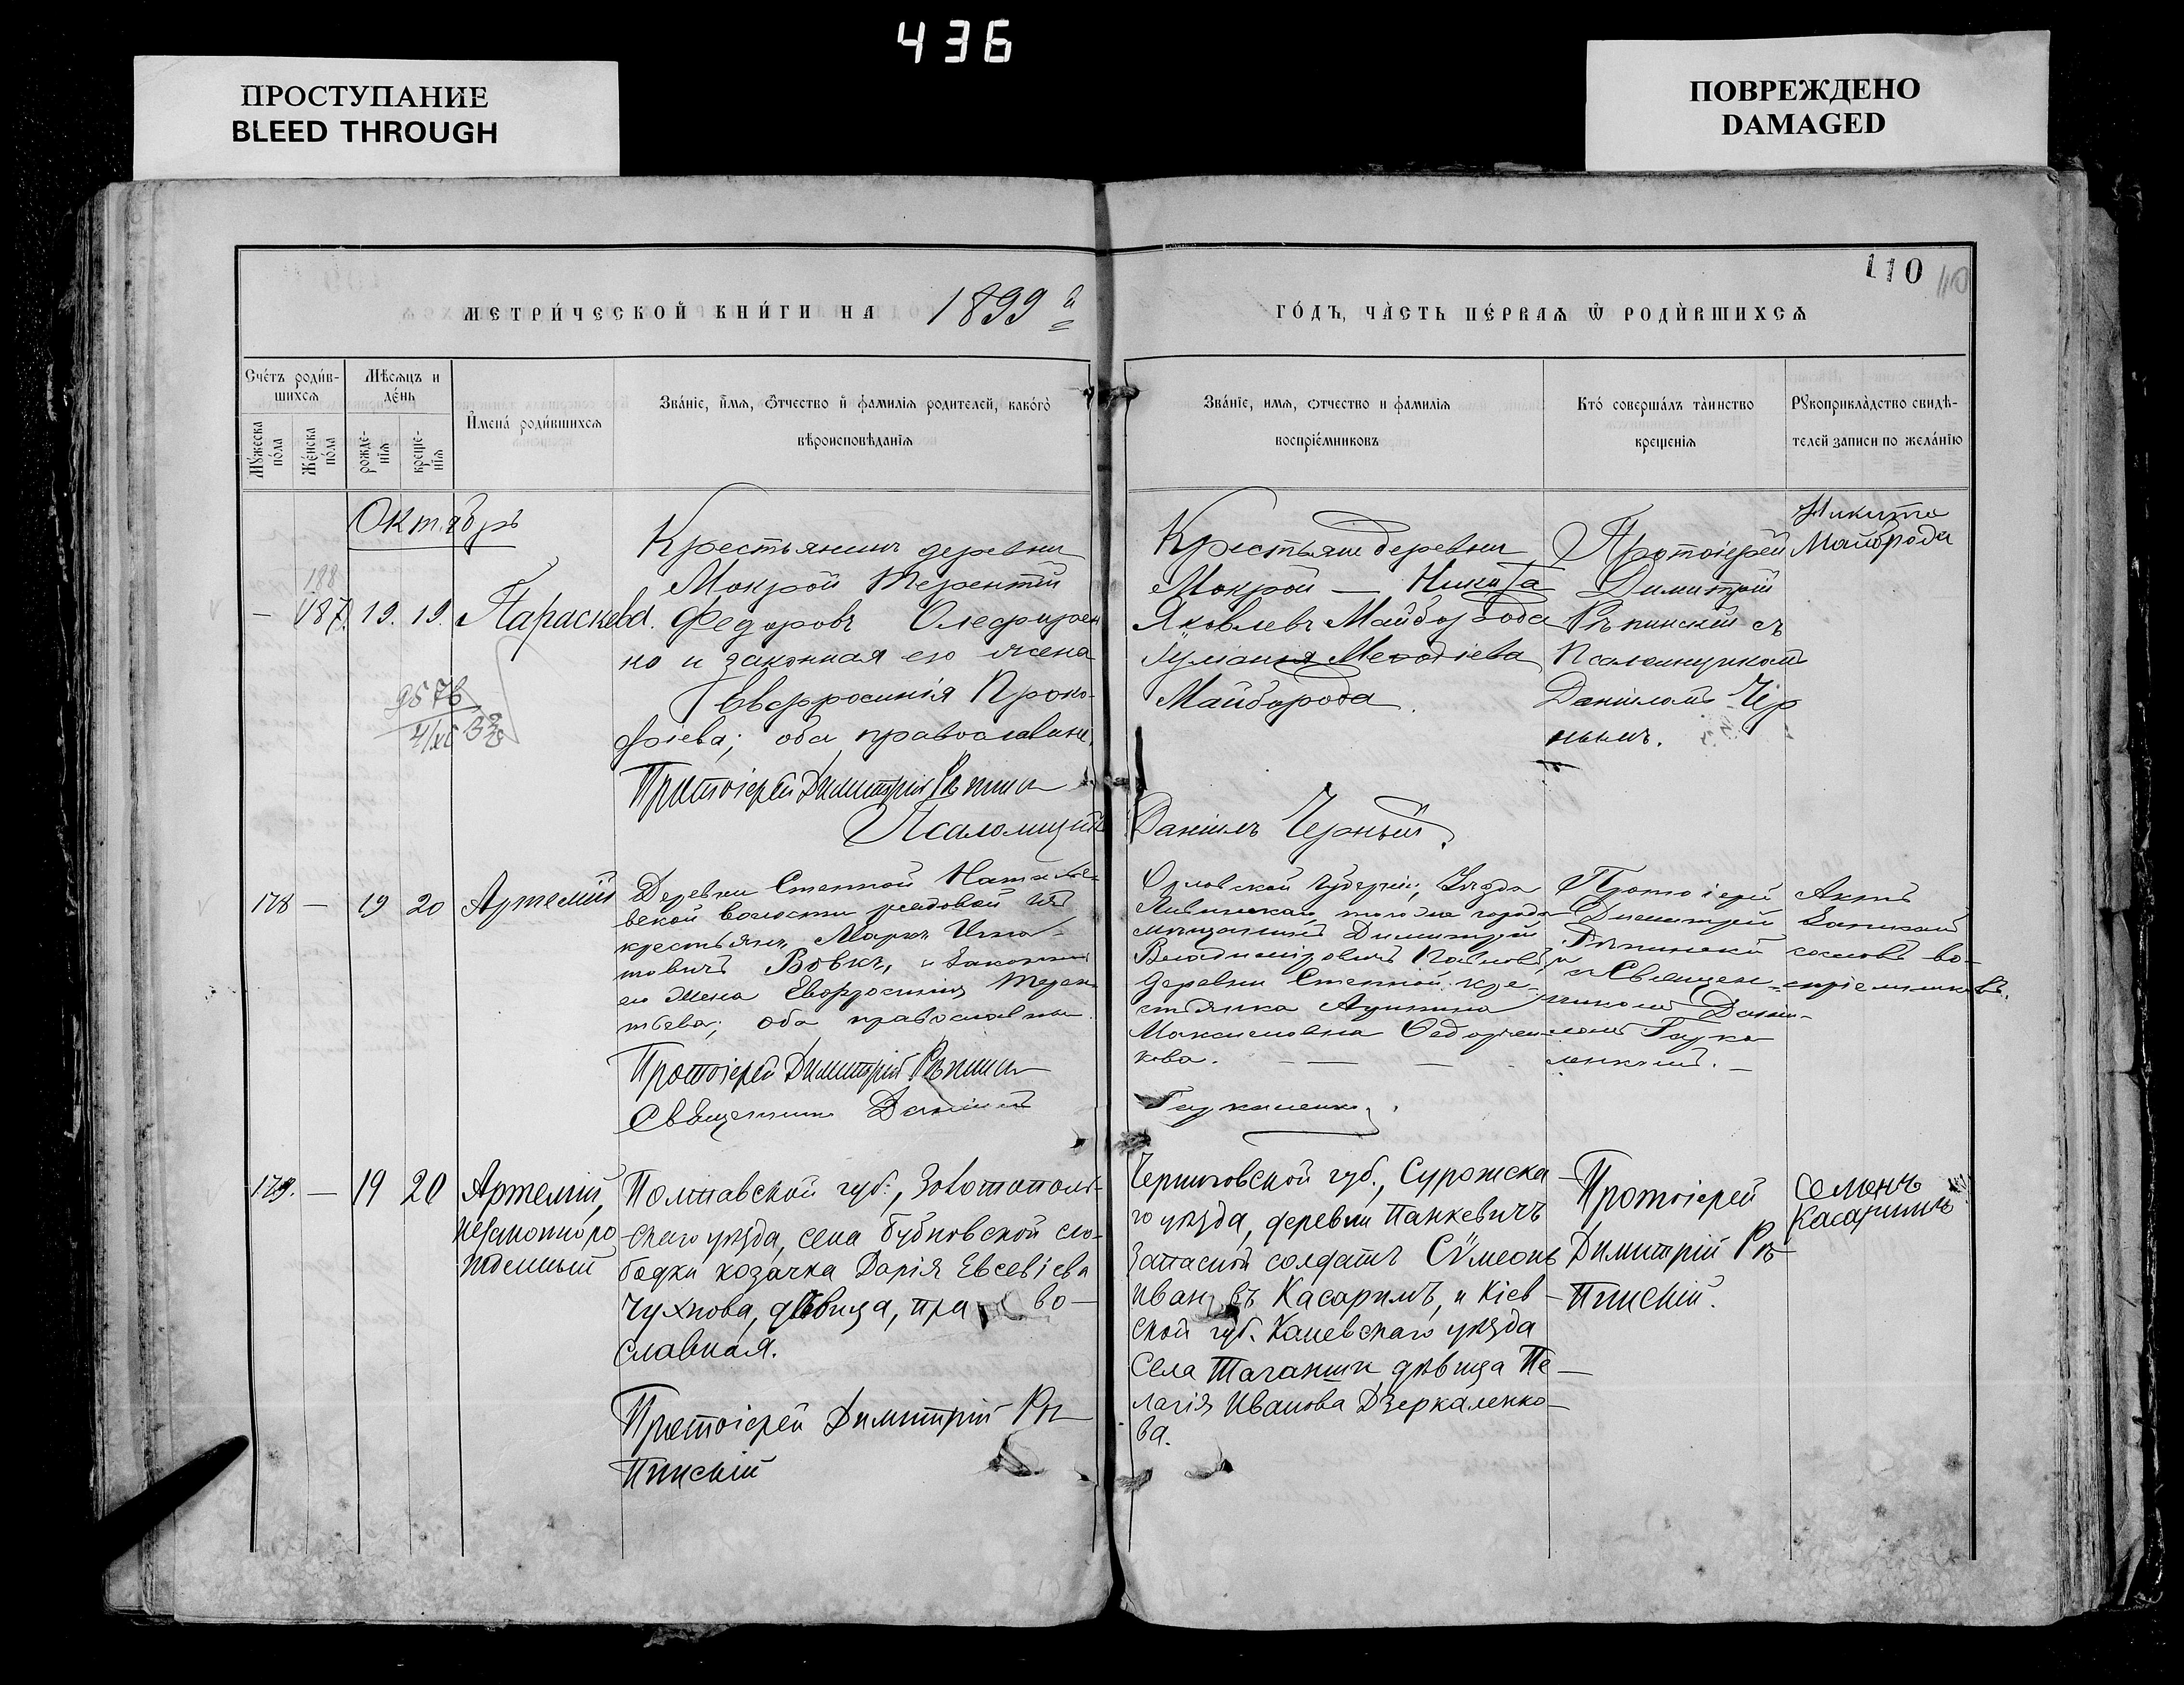 436
ПРОСТУПАНИЕ
BLEED THROUGH
ПОВРЕЖДЕНО
DAMAGED
110 110
МЕТРИ́ЧЕСКОЙ КНИ́ГИ НА 1899й
ГО́ДЪ, ЧА́СТЬ ПЕ́РВАѦ Ѿ РОДИ́ВШИХСѦ
Сче́тъ роди́в-
шихсѧ
Мꙋ́жеска по́ла
Же́нска по́ла
Мѣ́сѧцъ и
де́нь
рожде-
нїѧ
креще-
нїѧ
И҆мена̀ роди́вшихсѧ
Зва́нїе, и҆́мѧ, ѻ҆́тчество и҆ фамилїѧ родителей, како́гѡ
вѣроисповѣ́данїѧ
Зва́нїе, имѧ, ѻтчество и фамилїѧ
воспрїе́мниковъ
Кто́ соверша́лъ та́инство
крещенїѧ
Рꙋкоприкла́дство свидѣ́-
телей записи по жела́нїю
Октябрь
188
— 187. 19. 19. Параскева.
Крестьянинъ деревни
Мокрой Терентій
Федоровъ Олефирен
ко и законная его жена
Евфросинія Проко-
фіева; оба православны.
Протоіерей Димитрій Рѣпинск
Псаломщикъ
Крестьяне деревни
Мокрой — Никита
Яковлевъ Майборода
Іуліанія Меѳодіева
Майборода.
Даніилъ Черный.
Протоіерей
Димитрій
Рѣпинскій съ
Псаломщикомъ
Даніиломъ Чер
нымъ.
Никита
Майборода
178 — 19 20 Артемій
Деревни Степной Натале-
вской волости рядовой изъ
крестьянъ Маркъ Игна-
товичъ Вовкъ, и законная
его жена Евфросинія Терен-
тьева; оба православны.
Протоіерей Димитрій Рѣпинск
Священникъ Даніилъ
Орловской губерніи, Уезда
Ливенскаго, того же города
мещанинъ Димитрій
Владиміровичъ
деревни Степной кре-
стьянка
Максимовна
кова. — — —
Гаукаленко
Протоіерей
Димитрій
Рѣпинскій
и Священ-
никомъ Дании-
ломъ Гаука
ленкомъ. —
Актъ
записанъ
со словъ во-
спріемниковъ.
179. — 19 20 Артемій,
незаконноро
жденный
Полтавской губ., Золотонош-
скаго уѣзда, села Бубновской сло-
бодки козачка Дарія Евсевіева
Чухнова, дѣвица, право-
славная.
Протоіерей Димитрій Рѣ-
пинскій
Черниговской губ., Суражска-
го уѣзда, деревни Панкевичъ
запасной солдатъ Сѵмеонъ
Ивановъ Касаримъ, и Кіев-
ской губ. Каневскаго уѣзда
села Таганчи дѣвица Пе-
лагія Иванова Дзеркаленко-
ва.
Протоіерей
Димитрій Рѣ-
пинскій.
Семенъ
Касаримъ